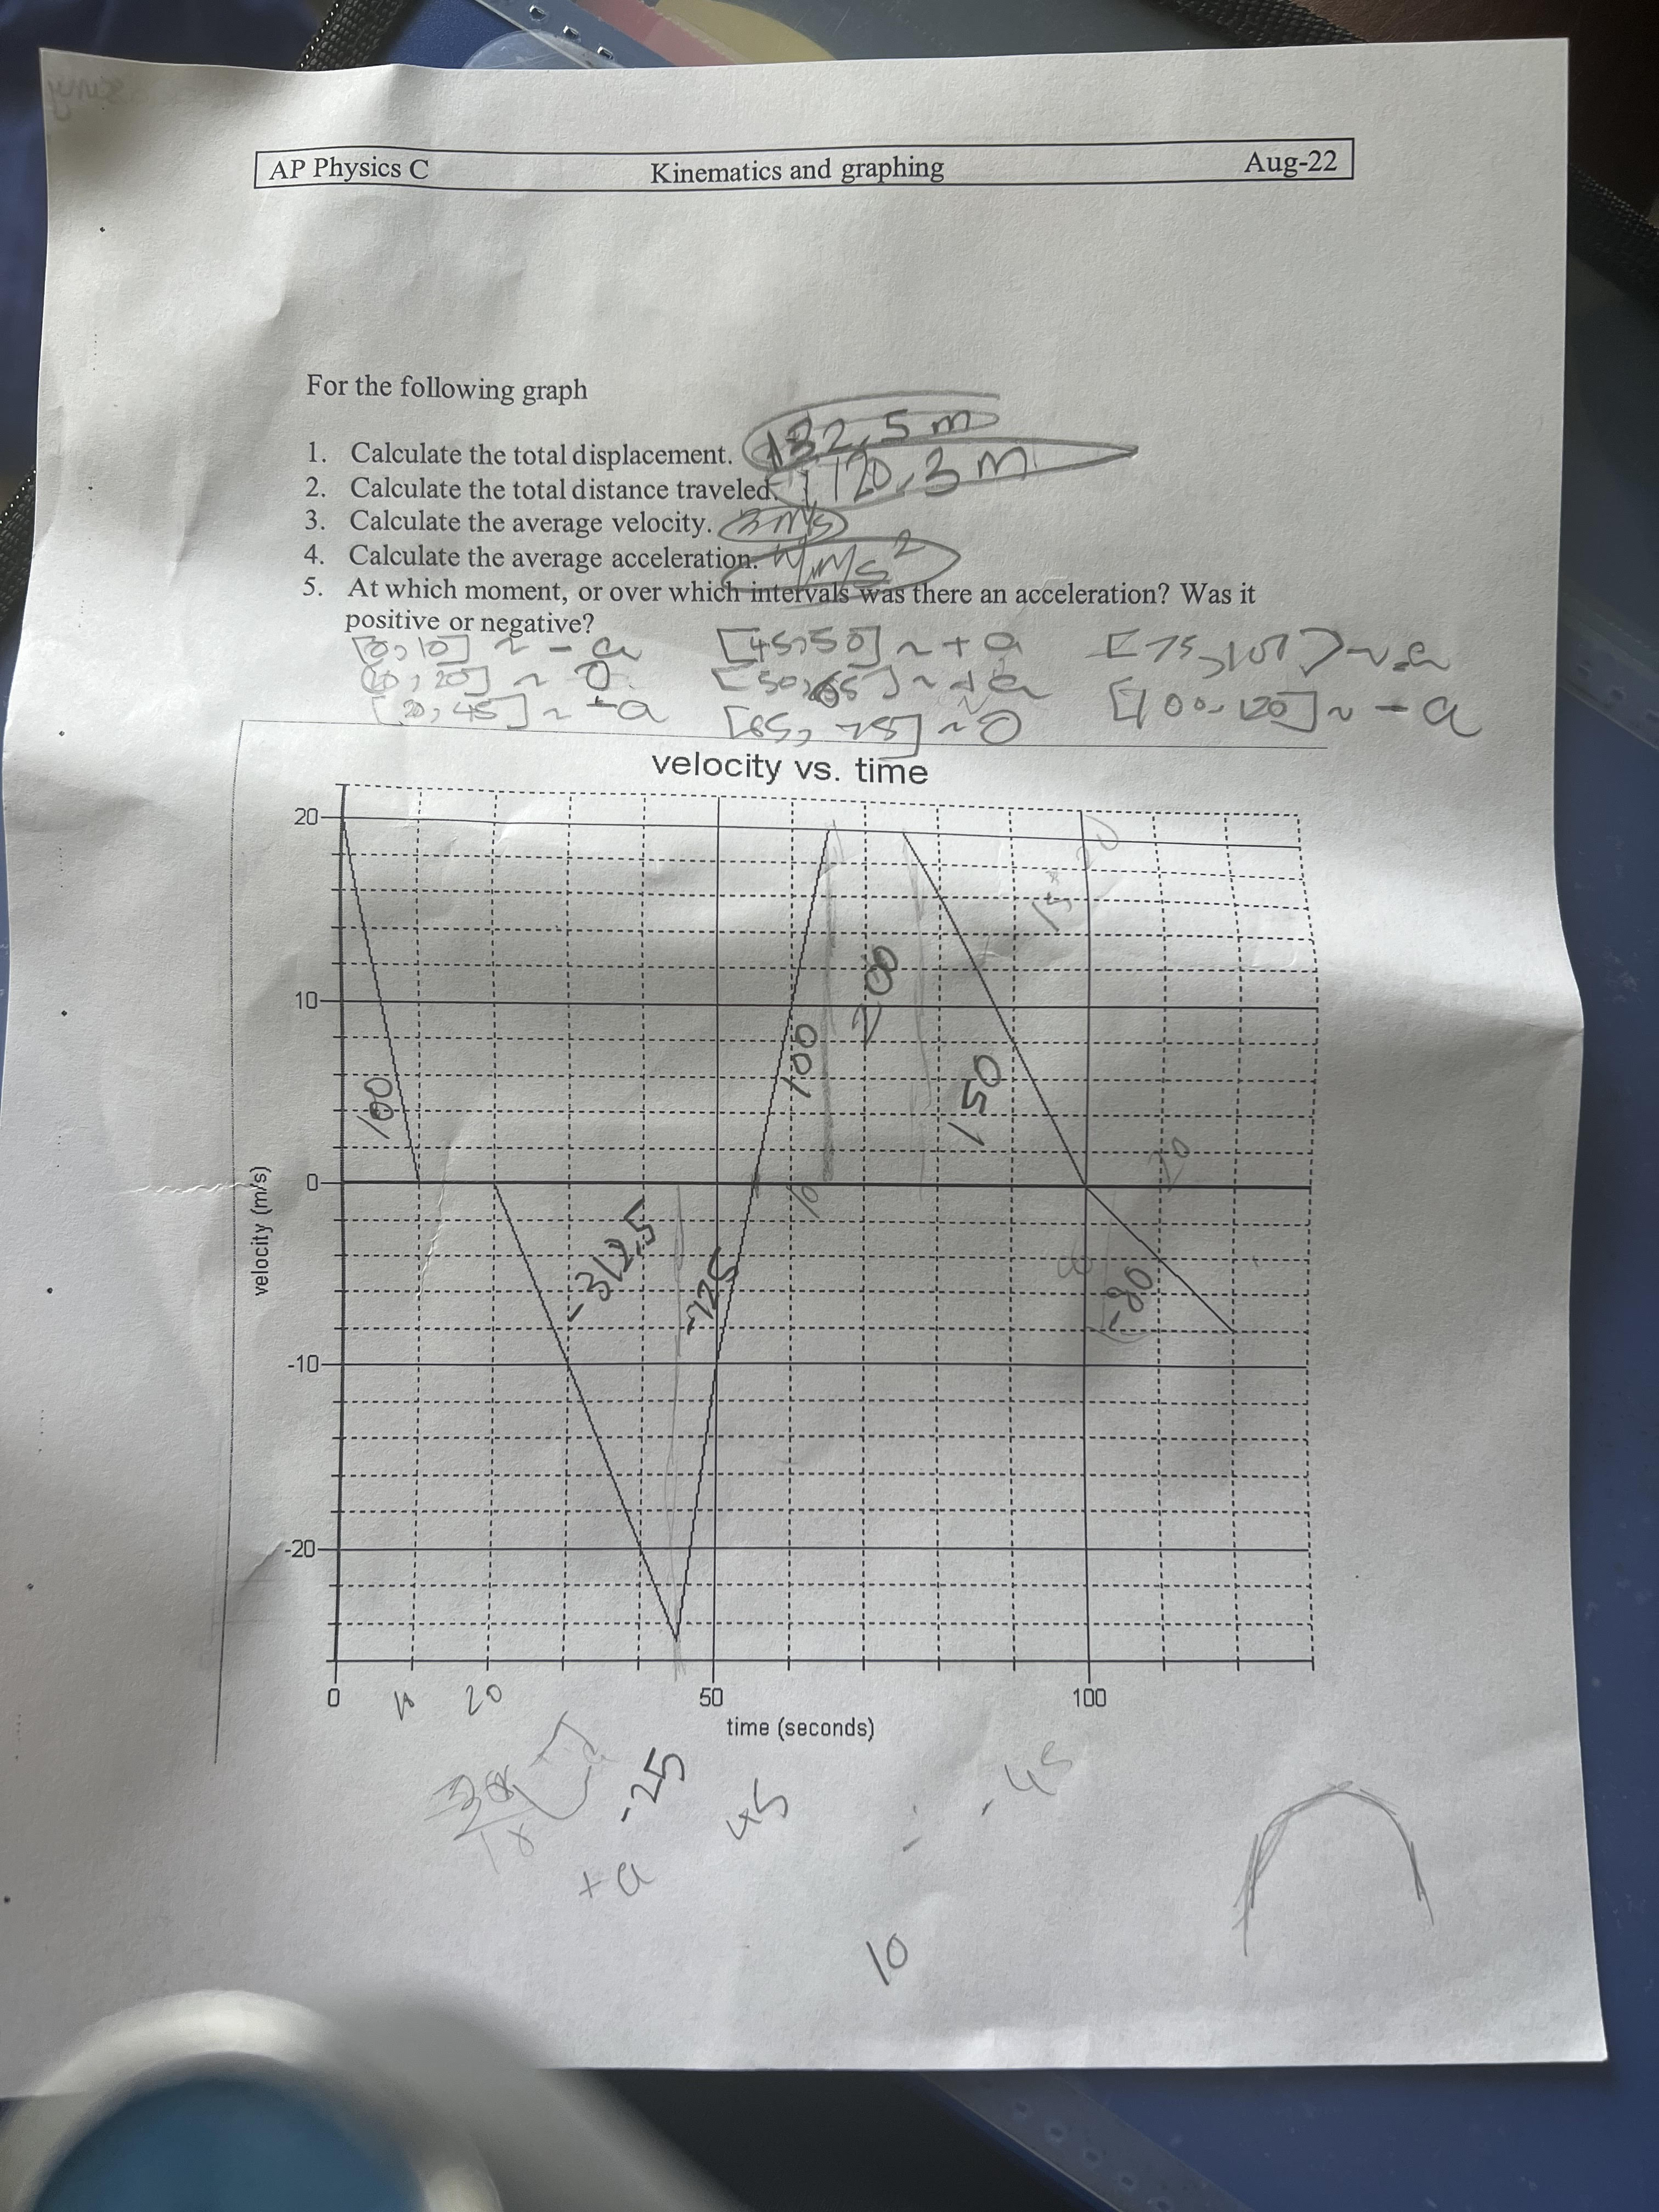 AP Physics C Kinematics and graphing Aug-22
For the following graph
1. Calculate the total displacement. 132.5 m
2. Calculate the total distance traveled. 1120.3 m
3. Calculate the average velocity. 3 m/s
4. Calculate the average acceleration. m/s²
5. At which moment, or over which intervals was there an acceleration? Was it
positive or negative?
[0,10] ~ - a [45,50] ~ + a [75,101) ~ -a
(10,20] ~ 0 [50,65] ~ +a [100,120] ~ - a
[20,45] ~ -a [65,75] ~ 0
velocity vs. time
20
20
15
10
200
100
150
100
0
10
20
-312.5
8
-125
-80
velocity (m/s)
-10
-20
0 10 20 50 100
time (seconds)
-25
45
-45
+a
10